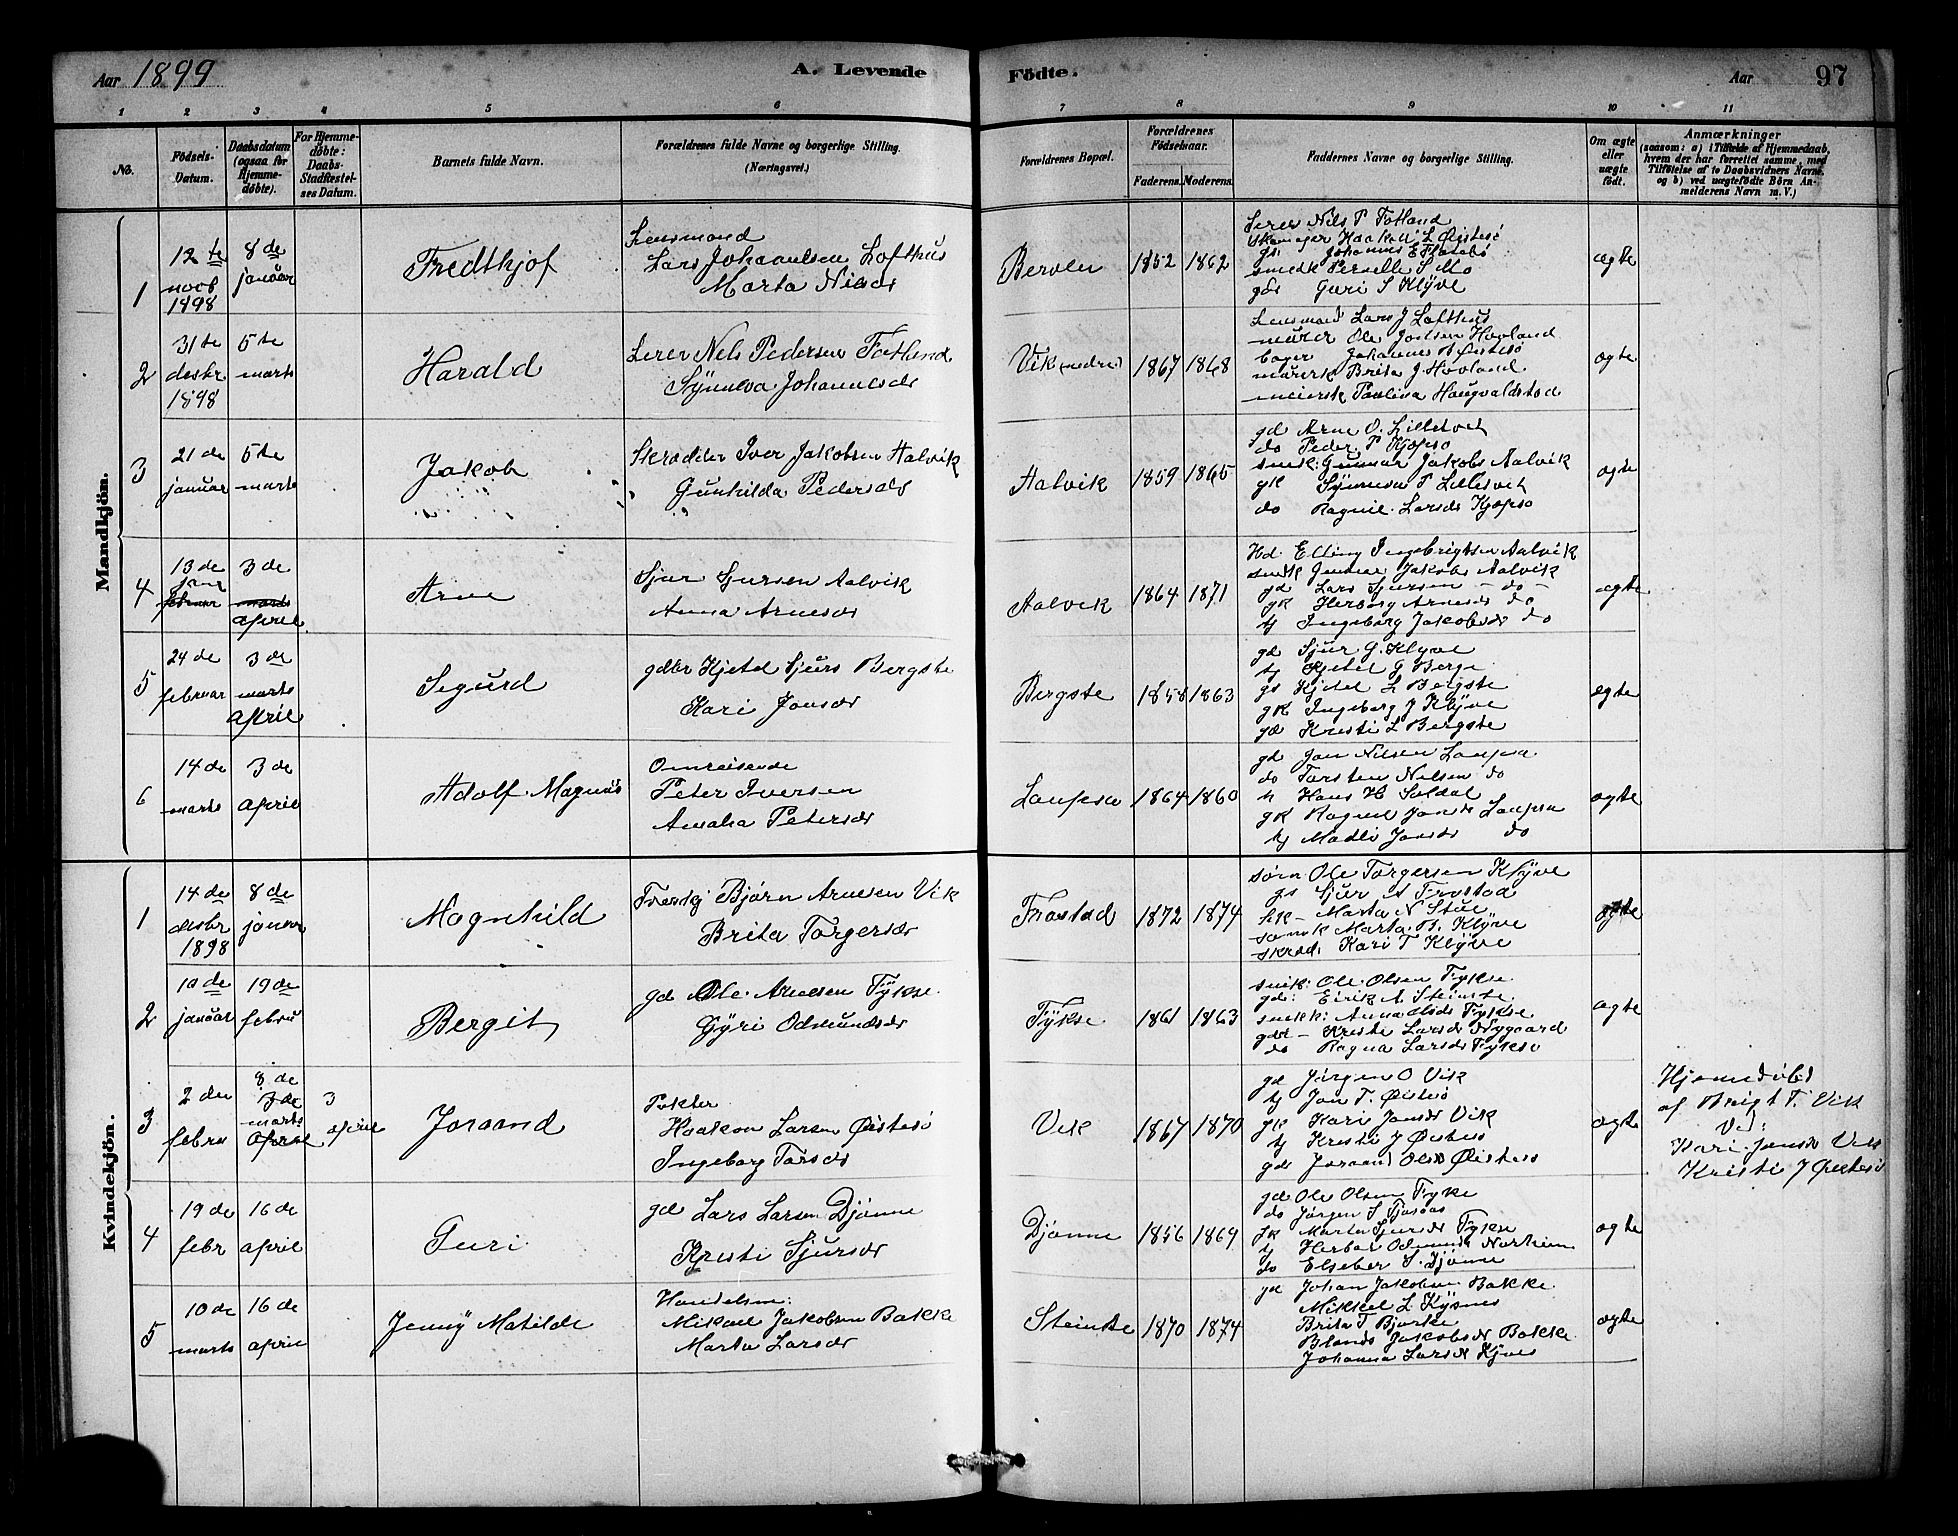 Aar 1899
A. Levende
Födte.
Aar
97
1 2 3 4 5 6 7 8 9 10 11
No.
Födsels-
Datum.
Daabsdatum
(ogsaa for
Hjemme-
döbte).
For Hjemme-
döbte:
Daabs-
Stadfæstel-
ses Datum.
Barnets fulde Navn.
Forældrenes fulde Navne og borgerlige Stilling.
(Næringsvei.)
Forældrenes Bopæl.
Forældrenes
Födselsaar.
Faderens. Moderens.
Faddernes Navne og borgerlige Stilling.
Om ægte
eller
uægte
födt.
Anmærkninger
(saasom: a) i Tilfælde af Hjemmedaab,
hvem der har forrettet samme, med
Tilföielse af to Daabsvidners Navne,
og b) ved uægtefödte Börn An-
melderens Navn m. V.)
Mandkjön.
1
12te
novb
1898
8de
januar
Fredthjof
Lensmand
Lars Johannesen Lofthus
Marta Nilsdr
Berven
1852 1862
Lerer Nils P Fatland
Haakon L Øistesø
gs Johannes E Flotebø
smedk Pernelle S Mo
gdr Guri S Klyve
ægte
2
31te
desbr
1898
5te
marts
Harald
Lerer Nels Pedersen Fatland
Synneva Johannesdr
Vik (nedre)
1867 1868
Lensmand Lars J Lofthus
murer Ole Jonsen Hovland
bager Johannes Øistesø
murerk Brita J Hovland
meiersk Paulina Haugvaldstad
ægte
3
21de
januar
5te
marts
Jakob
Skrædder Iver Jakobsen Aalvik
Gunhilda Pedersdr
Aalvik
1859 1865
gd Arne O. Lilletvet
do Peder P Kjøpsø
snik: Gunnar Jakobs Aalvik
gk Synneva P Lilletvet
do Ragnil Larsdr Kjøpsø
ægte
4
13de
jan
februar
3de
marts
april
Arne
Sjur Sjursen Aalvik
Anna Arnesdr
Aalvik
1864 1871
Hd. Elling Ingebrigtsen Aalvik
snik Gunnar Jakobs Aalvik
gd Lars Sjursen - do -
gk Herborg Arnesdr do
tj Ingeborg Jakobsdr do
ægte
5
24de
februar
3de
marts
april
Segurd
gdbr Kjetel Sjurs Bergste
Kari Jonsdr
Bergste
1858 1863
gd Sjur G. Klyve
tj Kjetel G Berge
gs Kjetel L Bergste
gk Ingeborg J Klyve
gd Kristi L Bergste
ægte
6
14de
marts
3de
april
Adolf Magnus
Omreisende
Peter Iversen
Amalia Petersdr
Laupsa
1864 1860
gd Jon Nilsen Laupsa
do Torsten Nilsen do
Hans H Soldal
gk Ragnil Jonsdr Laupsa
tj Madli Jonsdr do
ægte
Kvindekjön.
1
14de
desbr
1898
8de
januar
Magnhild
Bjørn Arnesen Vik
Brita Torgersdr
Frostad
1872 1874
Ole Torgersen Klyve
gs Sjur A Frostad
hk - Marta N Stue
Marta B. Klyve
skræd. Kari T Klyve
ægte
2
10de
januar
19de
febru
Bergit
gd Ole Arnesen Fykse
Gyri Odmundsdr
Fykse
1861 1863
snik: Ole Olsen Fykse
gd: Eirik A Steinste
snikk: Anna Olsdr Fykse
gdr - Kriste Larsdr Nygaard
do Ragna Larsdr Fykse
ægte
3
2den
febru
8de
3de
marts
april
3
april
Joraand
Pakter
Haakon Larsen Øistesø
Ingeborg Torsdr
Vik
1867 1870
gd Jørgen O Vik
tj Jon T. Øistesø
gk Kari Jonsdr Vik
tj Kristi J Øistesø
gd Joraand Olsdr Øistesø
ægte
Hjemmedøbt
af Brigt T. Vik
Ved:
Kari Jonsdr Vik
Kristi J Øistesø
4
19de
febr
16de
april
Guri
gd Lars Larsen Djønne
Kristi Sjursdr
Djønne
1856 1869
gd Ole Olsen Fykse
do Jørgen S
gk Marta Sjursdr Fykse
tj Herbor Odmundsdr Norheim
do Elseber S. Djønne
ægte
5
10de
marts
16de
april
Jenny Matilde
Handelsm:
Mikael Jakobsen Bakke
Marta Larsdr
Steinste
1870 1874
gd Johan Jakobsen Bakke
Mikkel L Kysnes
Brita T Bjerke
Blanda Jakobsdr Bakke
Johanna Larsdr
ægte